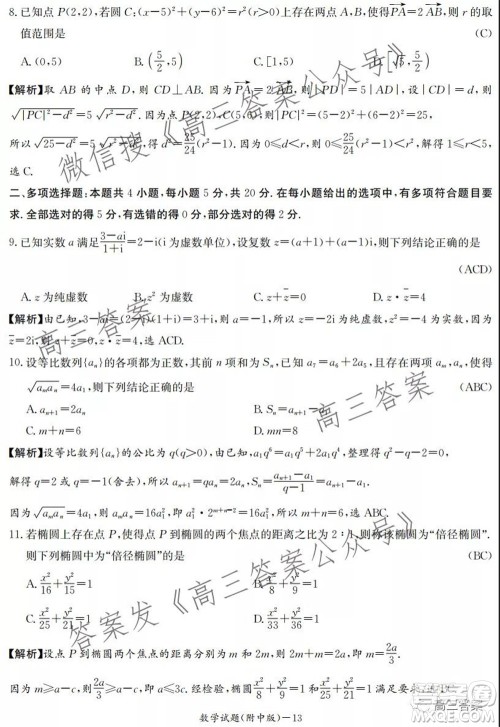 8.已知点 P(2,2),若圆 C:(x-5)²+(y-6)²=r²(r>0)上存在两点 A,B,使得PA=2AB,则 r 的取
值范围是 (C)
A.(0,5) B.(5/2,5) C.[1,5) D.[5/2,5)
[解析]取 AB 的中点 D,则 CD⊥AB.因为PA=2AB,则|PD|=5|AD|,设|CD|=d,则
√|PC|²-d²=5√r²-d².因为点 P(2,2),C(5,6),则|PC|²=(5-2)²+(6-2)²=25,
所以√25-d²=5√r²-d²,得 d²=25/24(r²-1).因为 0≤d<r,则 0≤25/24(r²-1)<r²,解得 1≤r<5,
选 C.
二、多项选择题:本题共 4 小题,每小题 5 分,共 20 分.在每小题给出的选项中,有多项符合题目要
求.全部选对的得 5 分,有选错的得 0 分,部分选对得 2 分.
9.已知实数 a 满足(3-ai)/(1+i)=2-i(i 为虚数单位),设复数 z=(a+1)+(a-1)i,则下列结论正确的是
(ACD)
A.z 为纯虚数 B.z² 为虚数 C.z+z̄=0 D.z·z̄=4
[解析]由已知,3-ai=(2-i)(1+i)=3+i,则 a=-1,所以 z=-2i 为纯虚数,z²=-4 为实数,因为
z̄=2i,则 z+z̄=0,z·z̄=4,选 ACD.
10.设等比数列{aₙ}的各项都为正数,其前 n 项和为 Sₙ,已知 a₇=a₆+2a₅,且存在两项 aₘ,aₙ,使得
√aₘaₙ=4a₁,则下列结论正确的是 (ABC)
A.aₙ₊₁=2aₙ B.Sₙ=aₙ₊₁-a₁
C.m+n=6 D.mn=8
[解析]设等比数列{aₙ}的公比为 q(q>0),由已知,a₁q⁶=a₁q⁵+2a₁q⁴,整理得 q²-q-2=0,
解得 q=2 或 q=-1(舍去),所以 aₙ₊₁=2aₙ,Sₙ=(aₙ₊₁-a₁)/(q-1)=aₙ₊₁-a₁.
因为√aₘaₙ=4a₁,则 aₘaₙ=16a₁²,即 a₁²·2ᵐ⁺ⁿ⁻²=16a₁²,则 m+n=6,选 ABC.
11.若椭圆上存在点 P,使得点 P 到椭圆的两个焦点的距离之比为 2∶1,则称该椭圆为“倍径椭圆”.
则下列椭圆中为“倍径椭圆”的是 (BC)
A.x²/16+y²/15=1 B.x²/8+y²/9=1
C.x²/25+y²/21=1 D.x²/33+y²/36=1
[解析]设点 P 到椭圆两个焦点的距离分别为 m 和 2m,则 2m+m=2a,即 m=2a/3.
因为 m≥a-c,则 2a/3≥a-c,即 a≤3c.经检验,椭圆x²/8+y²/9=1 和x²/25+y²/21=1 满足要求,选 BC.
数学试题(附中版)-13
微信搜《高三答案公众号》
高三答案
高三答案
答案发《高三答案公众号》
高三答案